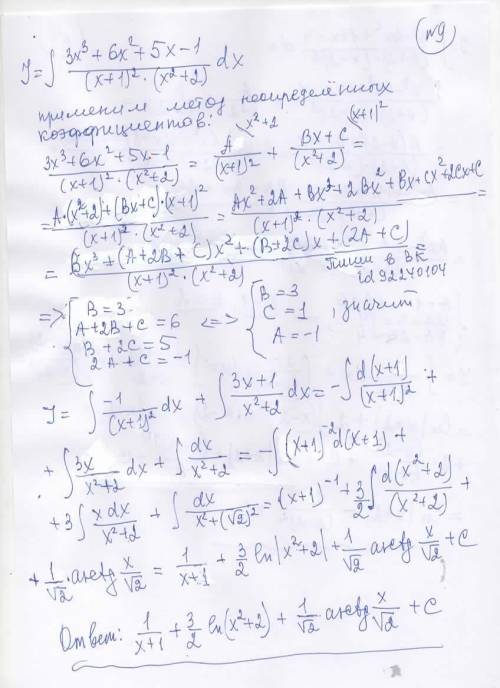 №9
J = ∫ (3x³ + 6x² + 5x - 1) / ((x+1)² · (x²+2)) dx
применим метод неопределённых
коэффициентов: x²+2 (x+1)²
(3x³ + 6x² + 5x - 1) / ((x+1)² · (x²+2)) = A / (x+1)² + (Bx + C) / (x²+2) =
= (A·(x²+2) + (Bx+C)·(x+1)²) / ((x+1)² · (x²+2)) = (Ax² + 2A + Bx³ + 2Bx² + Bx + Cx² + 2Cx + C) / ((x+1)² · (x²+2)) =
= (Bx³ + (A+2B+C)x² + (B+2C)x + (2A+C)) / ((x+1)² · (x²+2)) =
Пиши в ВК
id92240104
=> { B = 3 <=> { B = 3
A + 2B + C = 6 C = 1 , значит
B + 2C = 5 A = -1
2A + C = -1
J = ∫ -1 / (x+1)² dx + ∫ (3x+1) / (x²+2) dx = -∫ d(x+1) / (x+1)² +
+ ∫ 3x / (x²+2) dx + ∫ dx / (x²+2) = -∫ (x+1)⁻² d(x+1) +
+ 3∫ x dx / (x²+2) + ∫ dx / (x²+(√2)²) = (x+1)⁻¹ + 3/2 ∫ d(x²+2) / (x²+2) +
+ 1/√2 · arctg x/√2 = 1/(x+1) + 3/2 ln|x²+2| + 1/√2 arctg x/√2 + C
Ответ: 1/(x+1) + 3/2 ln(x²+2) + 1/√2 arctg x/√2 + C